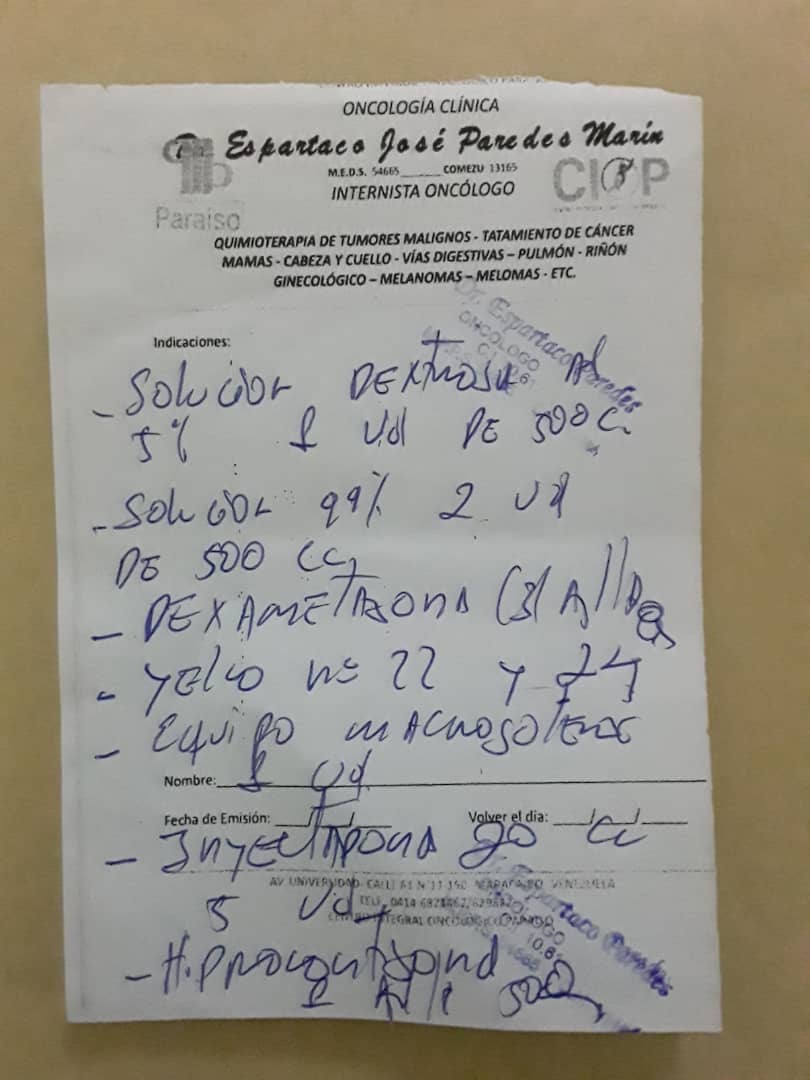 ONCOLOGÍA CLÍNICA
Dr. Espartaco José Paredes Marín
M.E.D.S. 54665 COMEZU 13165
INTERNISTA ONCÓLOGO
Paraíso
QUIMIOTERAPIA DE TUMORES MALIGNOS - TATAMIENTO DE CÁNCER
MAMAS - CABEZA Y CUELLO - VÍAS DIGESTIVAS – PULMÓN - RIÑÓN
GINECOLÓGICO – MELANOMAS – MELOMAS - ETC.
Dr. Espartaco Paredes
ONCOLOGO
Indicaciones:
- Solución DEXTROSA AL
5% 1 Ud DE 500 CC
- Solución 99% 2 Ud
DE 500 CC
- DEXAMETASONA (3)
- YELCO Nº 22 Y 24
- EQUIPO MACROGOTERO
1 Ud
Nombre:
Fecha de Emisión: __/__/__ Volver el dia: __/__/__
- INYECTADORA 20 CC
5 Ud
AV. UNIVERSIDAD CALLE 61 N°11-150 MARACAIBO VENEZUELA
Espartaco Paredes
- HIDROCORTISONA
1 500